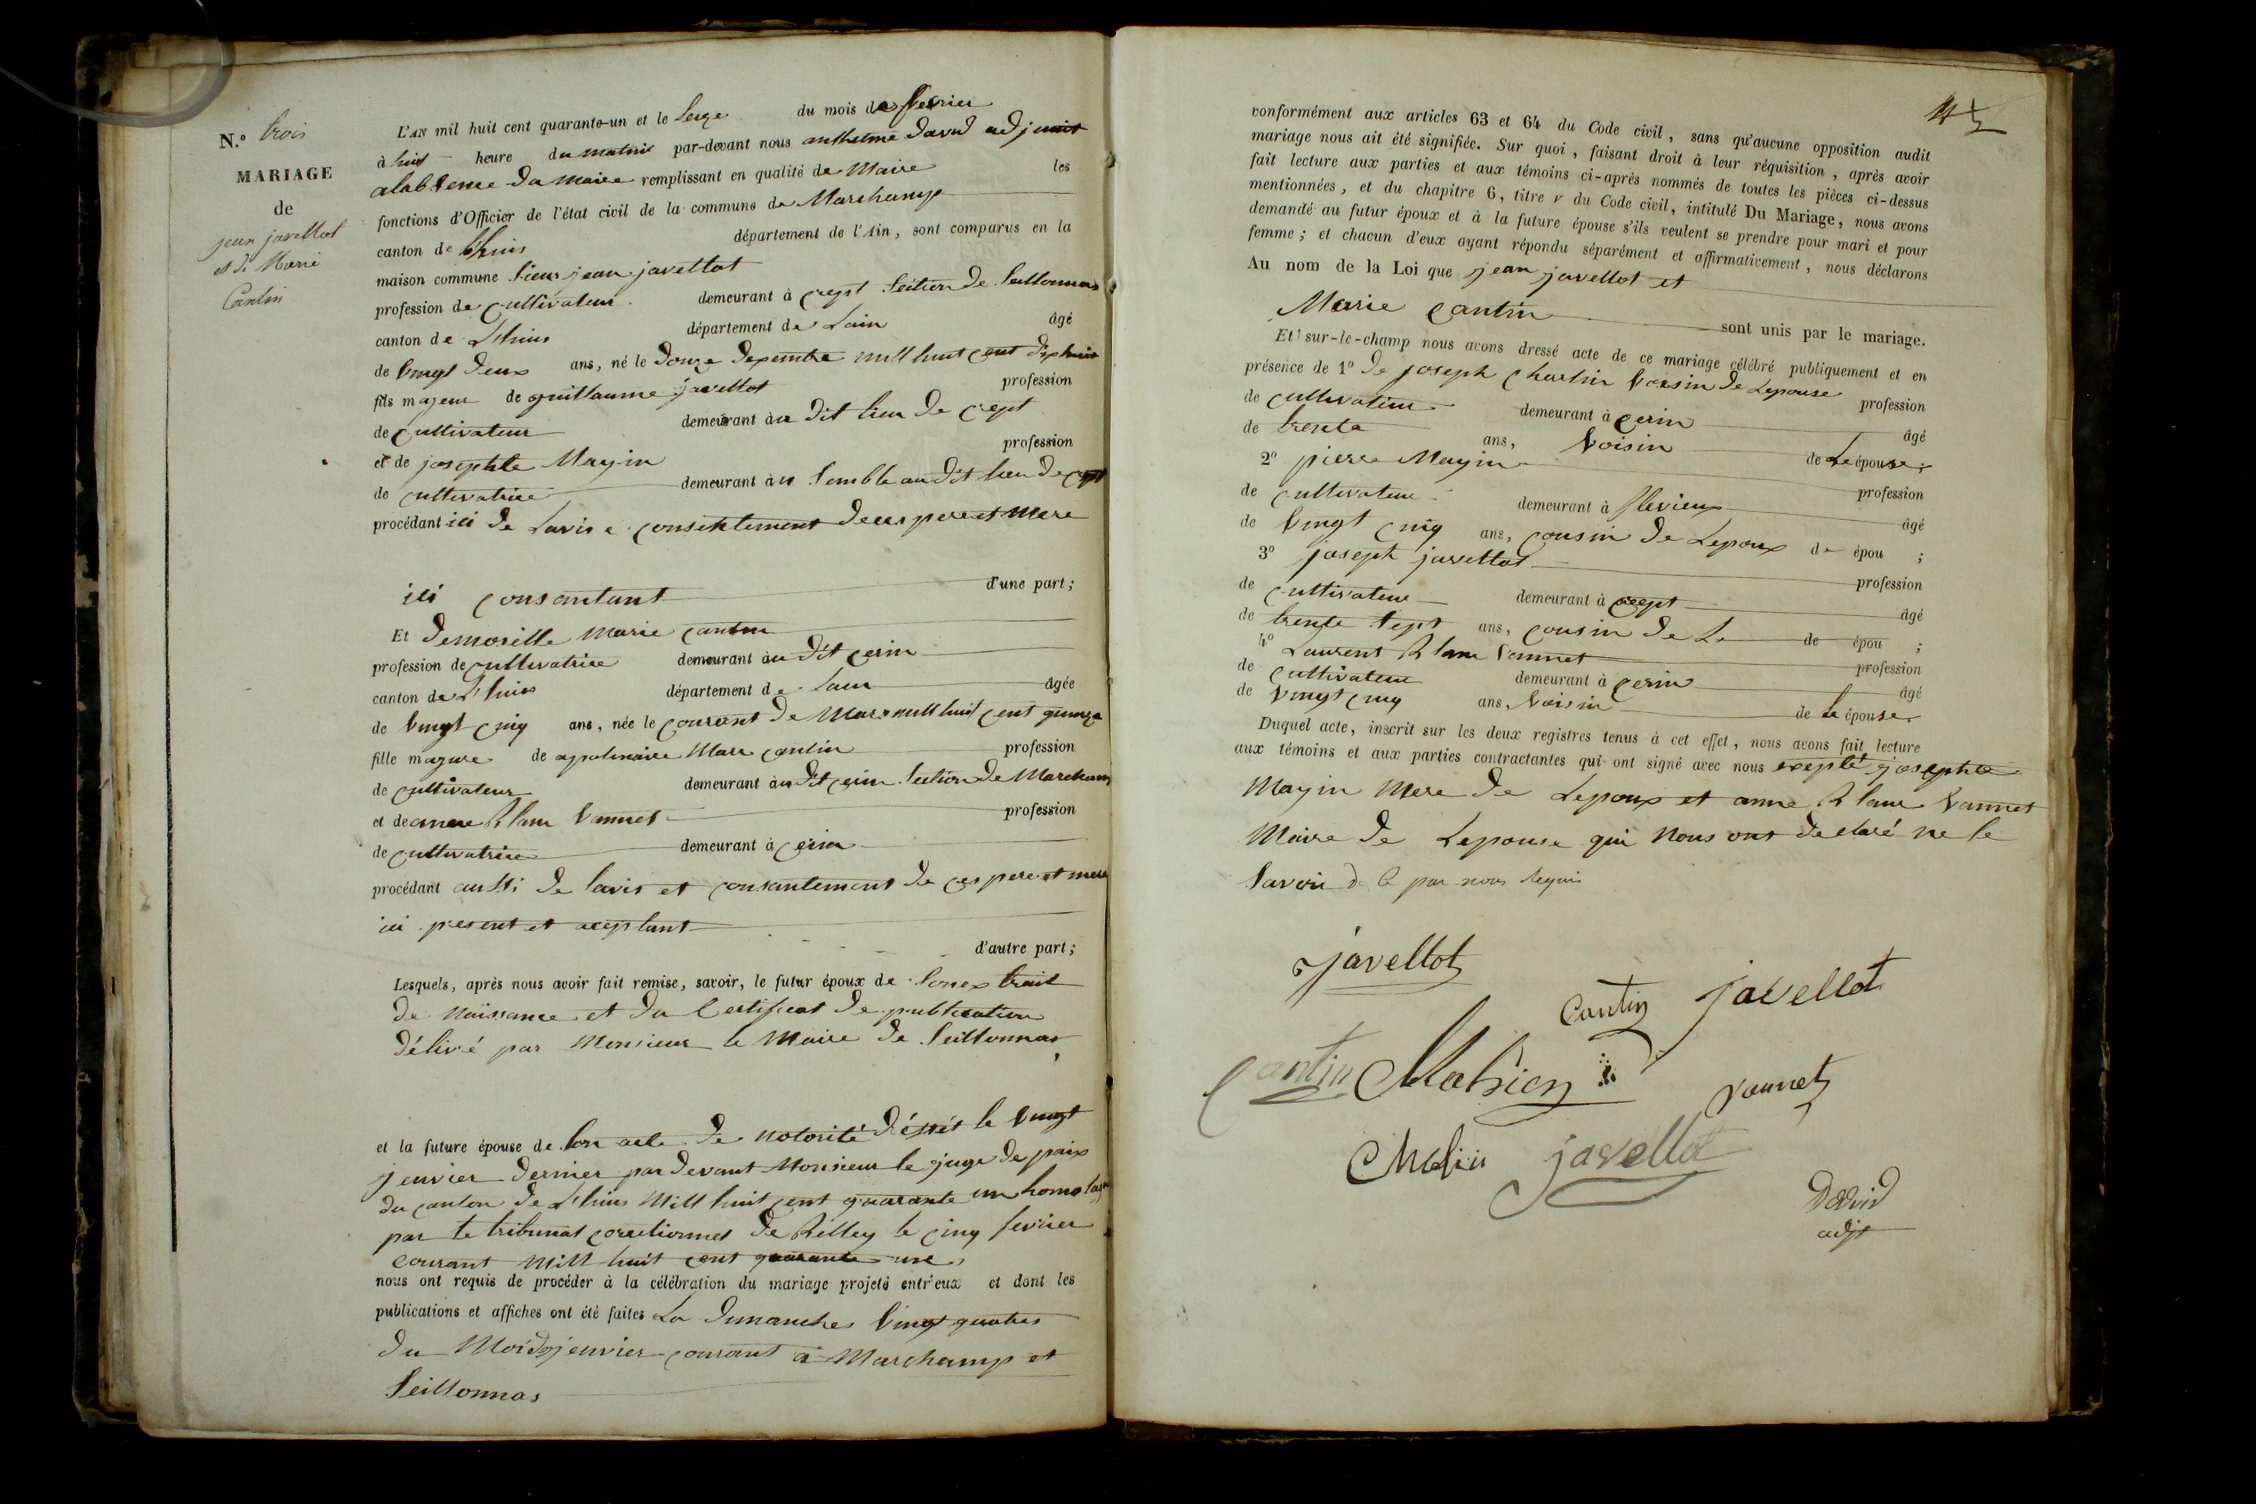 N.° trois
MARIAGE
de
jean javellot
et de Marie
Cantin
L'AN mil huit cent quarante-un et le seize du mois de fevrier
à huit heure du matin par-devant nous anthelme david adjoint
alabsence du maire remplissant en qualité de Maire les
fonctions d'Officier de l'état civil de la commune de Marchamp
canton de Lhuis département de l'Ain, sont comparus en la
maison commune sieur jean javellot
profession de cultivateur demeurant à crept section de seillonnas
canton de Lhuis département de Lain âgé
de vingt deux ans, né le douze dexembre mill huit cent dix huit
fils majeur de guillaume javellot profession
de cultivateur demeurant au dit lieu de crept
et de josephte Mayin profession
de cultivatrice demeurant à semble au dit lieu de crept
procédant ici de Lavis e consentement de ces pere et Mere
ici consantant d'une part;
Et demoiselle Marie cantin
profession de cultivatrice demeurant au dit cerin
canton de Lhuis département de Lain âgée
de vingt cinq ans, née le courant de Mars mill huit cent quinze
fille majure de apolinaire Marc cantin profession
de cultivateur demeurant au dit cerin section de Marchamp
et de anne Blanc Vannet profession
de cultivatrice demeurant à cerin
procédant aussi de lavis et consantement de ces pere et mere
ici present et aceptant
d'autre part;
Lesquels, après nous avoir fait remise, savoir, le futur époux de son extrait
de Naissance et du Certificat de publication
délivé par Monsieur le Maire de Seillonnas
et la future épouse de son acte de notorité le vingt
jenvier dernier par devant Monsieur le juge de paix
du canton de Lhuis Mill huit cent quarante un homolag
par le tribunal correctionnel de Belley le cinq fevrier
courant Mill huit cent quarante une
nous ont requis de procéder à la célébration du mariage projeté entr'eux et dont les
publications et affiches ont été faites Le dimanches vingt quatres
du Mois de jenvier courant à Marchamp et
Seillonnas
conformément aux articles 63 et 64 du Code civil, sans qu'aucune opposition audit
mariage nous ait été signifiée. Sur quoi, faisant droit à leur réquisition, après avoir
fait lecture aux parties et aux témoins ci-après nommés de toutes les pièces ci-dessus
mentionnées, et du chapitre 6, titre v du Code civil, intitulé Du Mariage, nous avons
demandé au futur époux et à la future épouse s'ils veulent se prendre pour mari et pour
femme; et chacun d'eux ayant répondu séparément et affirmativement, nous déclarons
Au nom de la Loi que jean javellot et
Marie cantin sont unis par le mariage.
Et sur-le-champ nous avons dressé acte de ce mariage célébré publiquement et en
présence de 1° de joseph Charlin voisin de Lepouse profession
de cultivateur demeurant à cerin âgé
de trente ans, voisin de Le épouse;
2° pierre Mayin profession
de cultivateur demeurant à flevieux âgé
de vingt cinq ans, cousin de Lepoux de épou ;
3° joseph javellot profession
de cultivateur demeurant à crept âgé
de trente sept ans, cousin de L de épou ;
4° Laurent Blanc Vannet profession
de cultivateur demeurant à cerin âgé
de vingt cinq ans, voisin de la épouse
Duquel acte, inscrit sur les deux registres tenus à cet effet, nous avons fait lecture
aux témoins et aux parties contractantes qui ont signé avec nous exepté josephte
Mayin Mere de Lepoux et anne Blanc Vannet
Maire de Lepouse qui Nous ont declaré ne le
savoir de ce par nous requis
javellot
Cantin javellot
Cantin Vannet
javellot
David
adjt